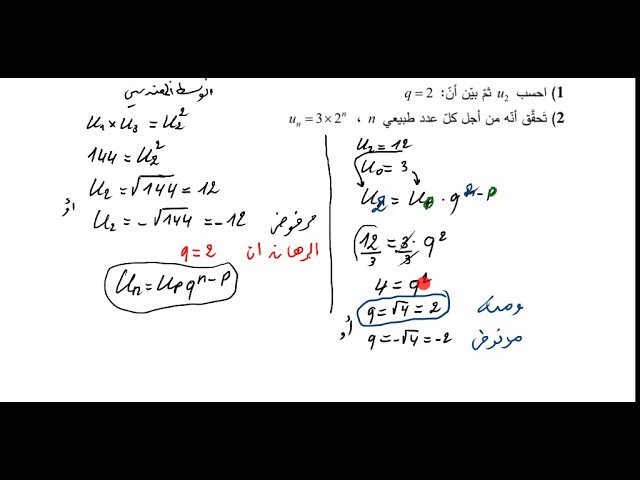 1) احسب u₂ ثمّ بيّن أنّ: q = 2
2) تَحقَّق أنّه من أجل كلّ عدد طبيعي n ، uₙ = 3 × 2ⁿ
الوسط الهندسي
U₁ × U₃ = U₂²
144 = U₂²
U₂ = √144 = 12
أو
U₂ = -√144 = -12 مرفوض
البرهان ان q = 2
Uₙ = Uₚ qⁿ⁻ᵖ
U₂ = 12
U₀ = 3
U₂ = U₀ · q²⁻⁰
12/3 = 3/3 · q²
4 = q²
q = √4 = 2
أو
q = -√4 = -2 مرفوض